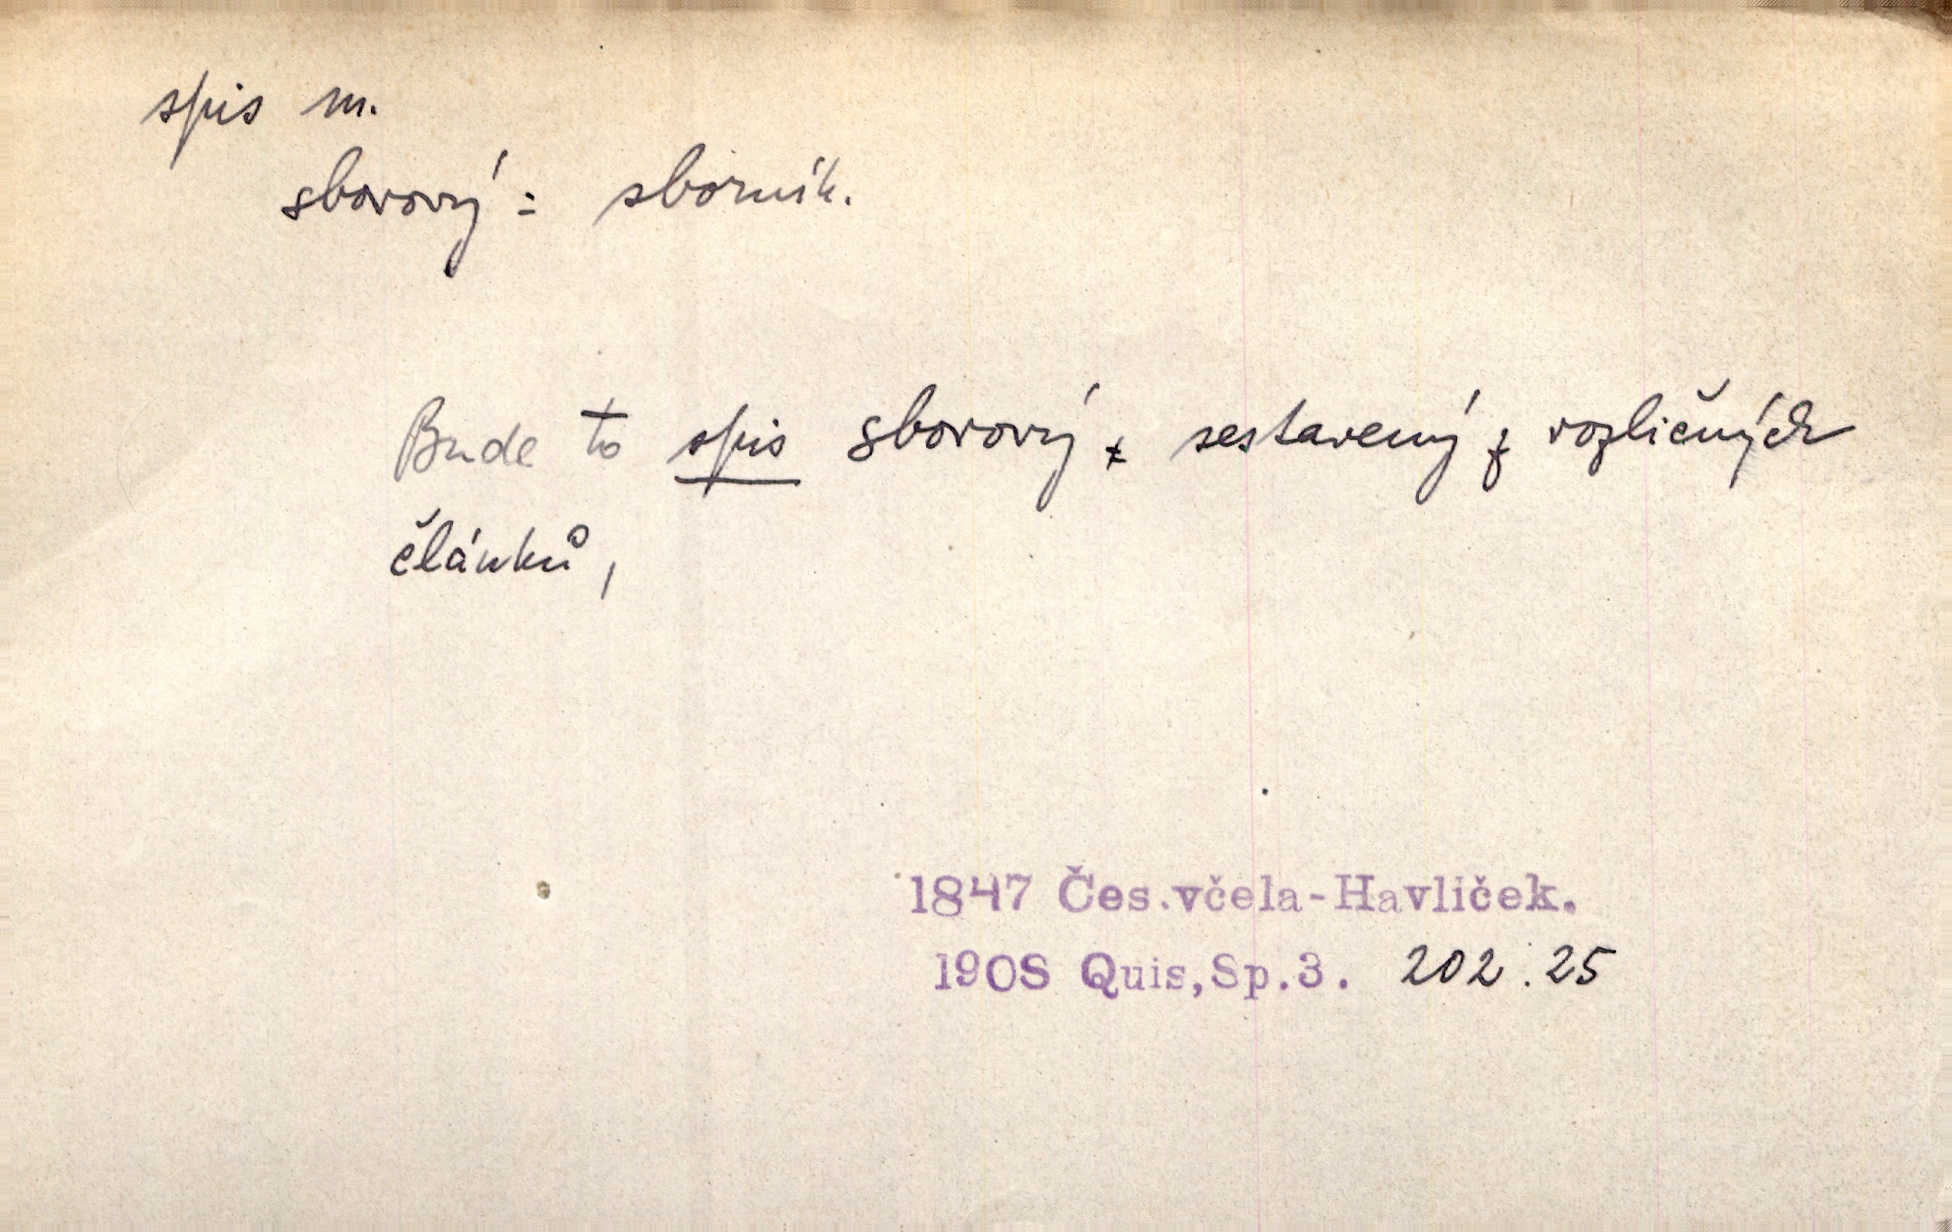 spis m.
sborový = sborník.
Bude to spis sborový, sestavený z rozličných
článků,
1847 Čes.včela-Havlíček.
1908 Quis,Sp.3. 202.25